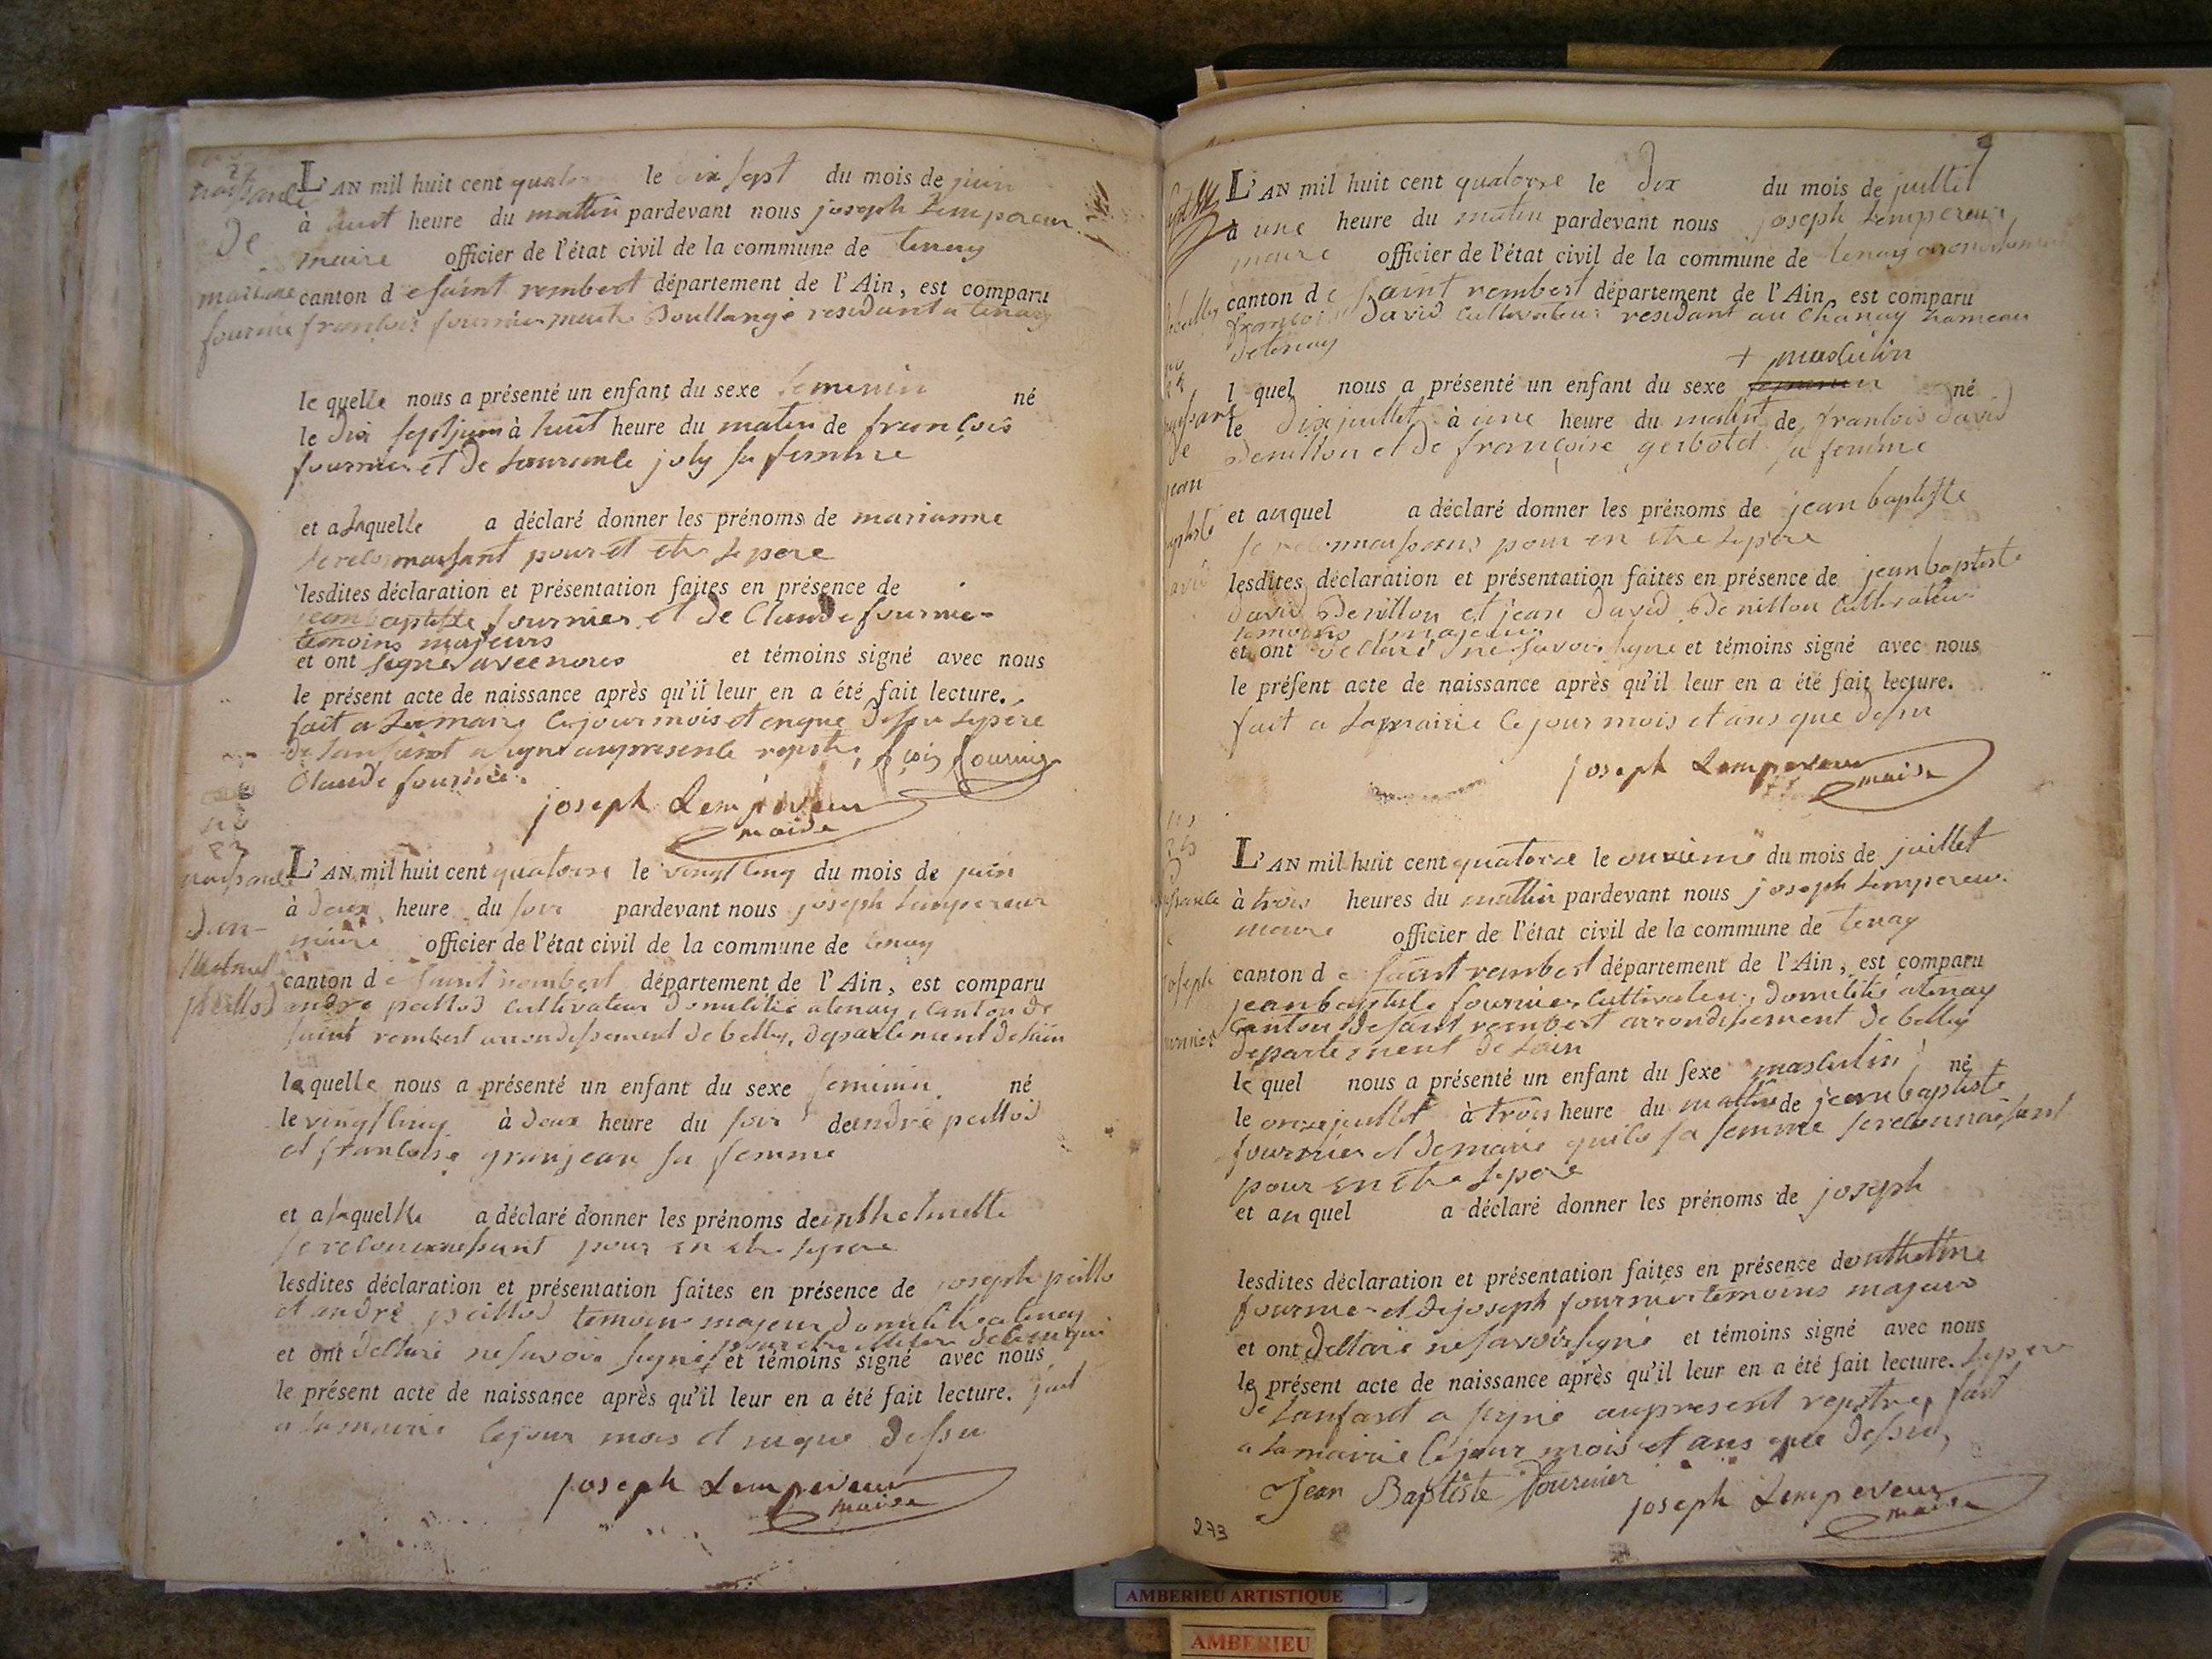 naissance
de
marianne
fournie
L'AN mil huit cent quatorze le dix sept du mois de juin
à huit heure du mattin pardevant nous joseph Lempereur
maire officier de l'état civil de la commune de tenay
canton de saint rembert département de l'Ain, est comparu
françois fournier Boullangé residant a tenay
le quelle nous a présenté un enfant du sexe feminin né
le dix sept juin à huit heure du matin de françois
fournier et de Laurence joly sa femme
et a laquelle a déclaré donner les prénoms de marianne
se reconnaissant pour et etre le pere
lesdites déclaration et présentation faites en présence de
jean baptiste fournier et de Claude fournie
temoins majeurs
et ont signé avec nous et témoins signé avec nous
le présent acte de naissance après qu'il leur en a été fait lecture.
fait a La marie le jour mois et en que dessu le père
de l'anfant a signe au presente registre, fçois fournier
Claude fournier
joseph Lempereur
maire
naissance
dan-
thelmette
peillod
L'AN mil huit cent quatorze le vingt cinq du mois de juin
à deux heure du soir pardevant nous joseph Lempereur
maire officier de l'état civil de la commune de tenay
canton de saint rembert département de l'Ain, est comparu
andré peillod cultivateur domicilié a tenay, canton de
saint rembert arrondissement de belley, departement de lain
laquelle nous a présenté un enfant du sexe feminin né
le vingt cinq à deux heure du soir de andré peillod
et françoise granjean sa femme
et a laquelle a déclaré donner les prénoms de anthelmette
se reconnaissant pour en etre le pere
lesdites déclaration et présentation faites en présence de joseph peillo
et andré peillod temoins majeur domicilié a tenay
et ont déclaré ne savoir signé et témoins signé avec nous
le présent acte de naissance après qu'il leur en a été fait lecture. fait
a la mairie le jour mois et en que dessu
joseph Lempereur
maire
naissance
de
jean
baptiste
david
L'AN mil huit cent quatorze le dix du mois de juillet
à une heure du matin pardevant nous joseph Lempereur
maire officier de l'état civil de la commune de tenay arrondissement
canton de saint rembert département de l'Ain, est comparu
françois david cultivateur residant au Chanay hameau
de tenay
+ masculin
lequel nous a présenté un enfant du sexe feminin né
le dix juillet à une heure du matin de françois david
Benillon et de françoise gerbolet sa femme
et auquel a déclaré donner les prénoms de jean baptiste
se reconnaissans pour en etre le pere
lesdites déclaration et présentation faites en présence de jean baptiste
david Benillon et jean david Benillon cultivateur
temoins majeurs
et ont declaré ne savoir signe et témoins signé avec nous
le présent acte de naissance après qu'il leur en a été fait lecture.
fait a la mairie le jour mois et ans que dessu
joseph Lempereur
maire
joseph
fournier
L'AN mil huit cent quatorze le onzieme du mois de juillet
à trois heures du mattin pardevant nous joseph Lempereur
maire officier de l'état civil de la commune de tenay
canton de saint rembert département de l'Ain, est comparu
jean baptiste fournier cultivateur, domicilié a tenay
canton de saint rembert arrondissement de belley
departement de lain
le quel nous a présenté un enfant du sexe masculin né
le onze juillet à trois heure du mattin de jean baptiste
fournier et de marie sa femme se reconnaissant
pour en etre le pere
et au quel a déclaré donner les prénoms de joseph
lesdites déclaration et présentation faites en présence de anthelme
fournier et de joseph fournier temoins majeurs
et ont déclaré ne savoir signé et témoins signé avec nous
le présent acte de naissance après qu'il leur en a été fait lecture. le pere
de l'anfant a signé au present registre, fait
a la mairie le jour mois et ans que dessu,
Jean Baptiste fournier
joseph Lempereur
maire
273
AMBERIEU ARTISTIQUE
AMBERIEU